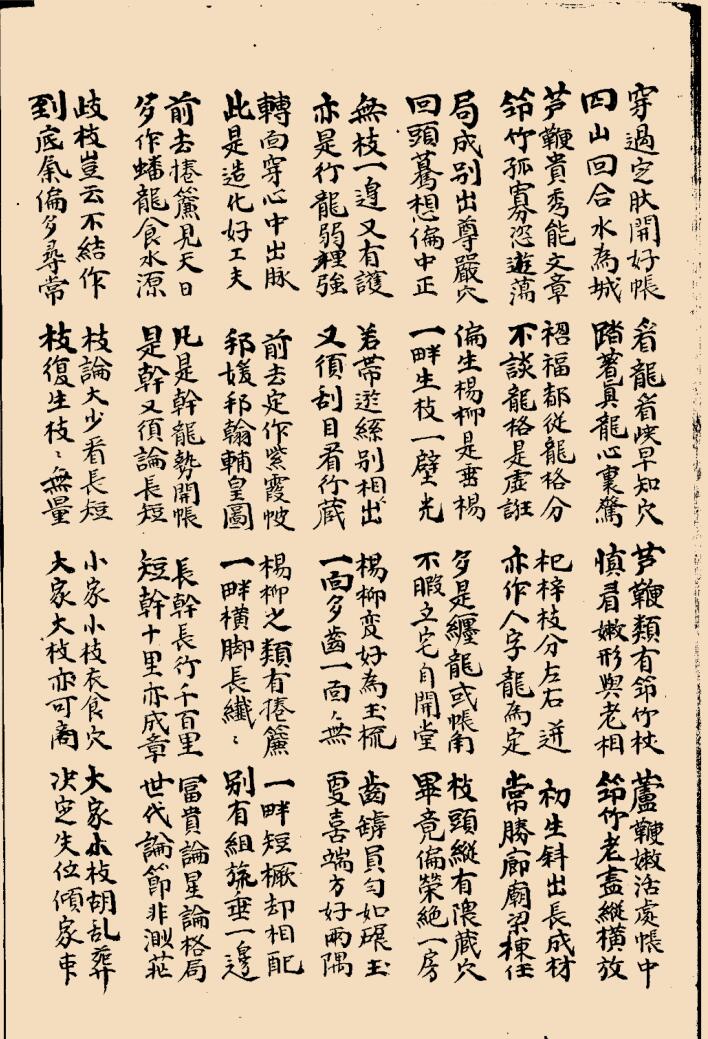 穿過定肤開好帳
四山回合水為城
看龍看峽早知穴
踏著真龍心裏驚
芦鞭類有筇竹杖
慎看嫩形與老相
蘆鞭嫩活處帳中
筇竹老盡縱橫放
芦鞭貴秀能文章
筇竹孤寡恣遊蕩
禍福都從龍格分
不談龍格是虛誑
杞梓枝分左右迸
亦作人字龍為定
初生斜出長成材
常勝廊廟梁棟任
局成別出尊嚴穴
回頭驀想偏中正
偏生楊柳是垂楊
一畔生枝一壁光
多是纏龍或帳角
不暇立宅自開堂
枝頭縱有隈藏穴
畢竟偏榮絕一房
無枝一邊又有護
亦是行龍弱裡強
若帶遊絲別相出
又須刮目看行藏
楊柳变好為玉梳
一面多齒一面無
齒罅員勻如碾玉
更喜端方好兩隅
轉面穿心中出脉
此是造化好工夫
前去定作紫霞帔
邦媛邦翰輔皇圖
楊柳之類有捲簾
一畔橫脚長纖〻
一畔短橛却相配
別有組旒垂一邊
前去捲簾見天日
多作蟠龍食水源
凡是幹龍勢開帳
是幹又須論長短
長幹長行千百里
短幹十里亦成章
富貴論星論格局
世代論節非渺茫
歧枝豈云不結作
到底氣偏多尋常
枝論大少看長短
枝復生枝〻無量
小家小枝衣食穴
大家大枝亦可商
大家小枝胡乱葬
决定失位傾家